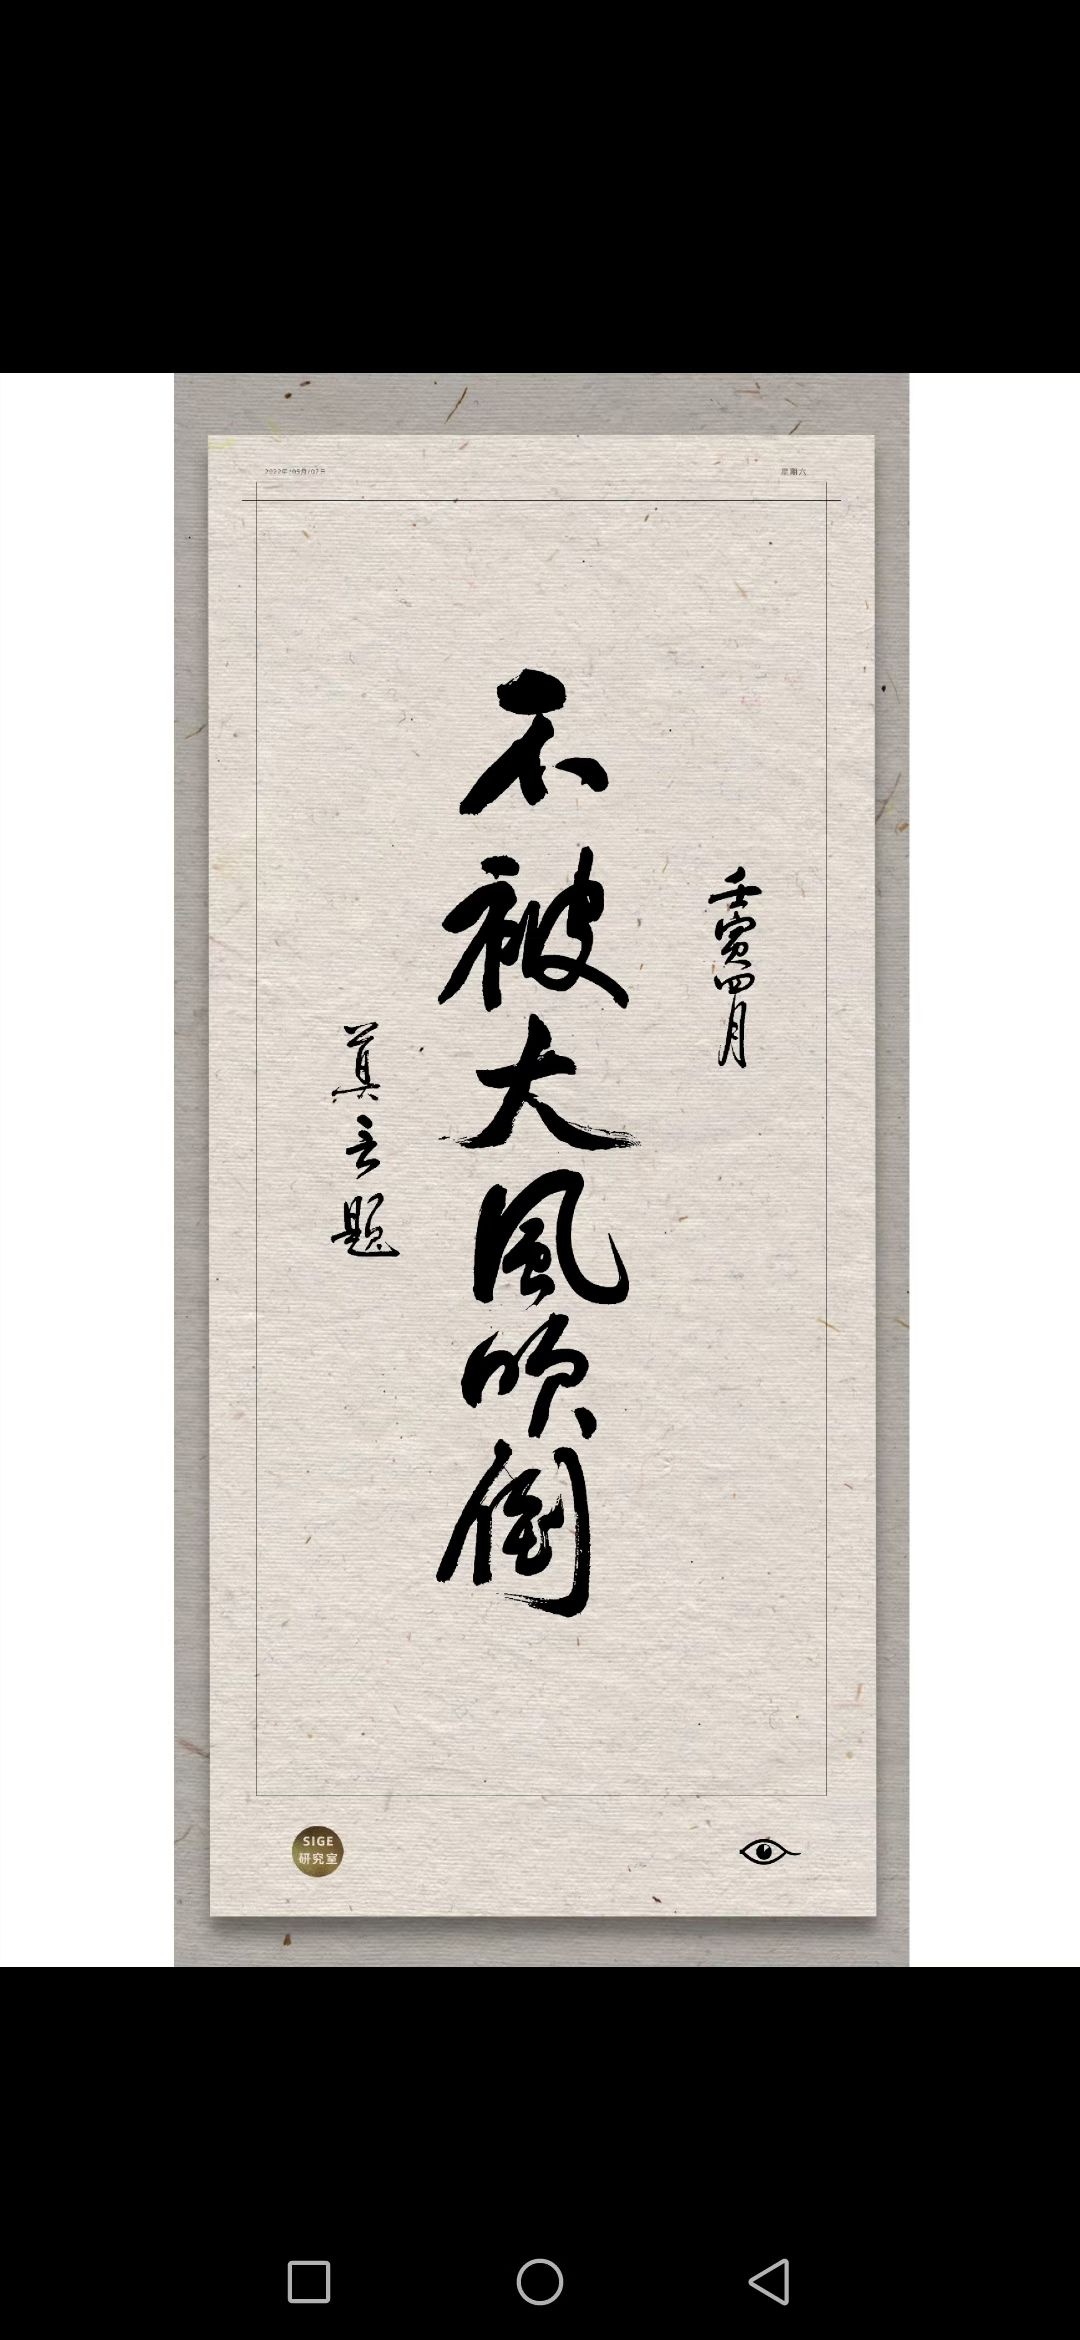 2022年/05月/07日 星期六
壬寅四月
不被大風吹倒
莫言题
SIGE
研究室